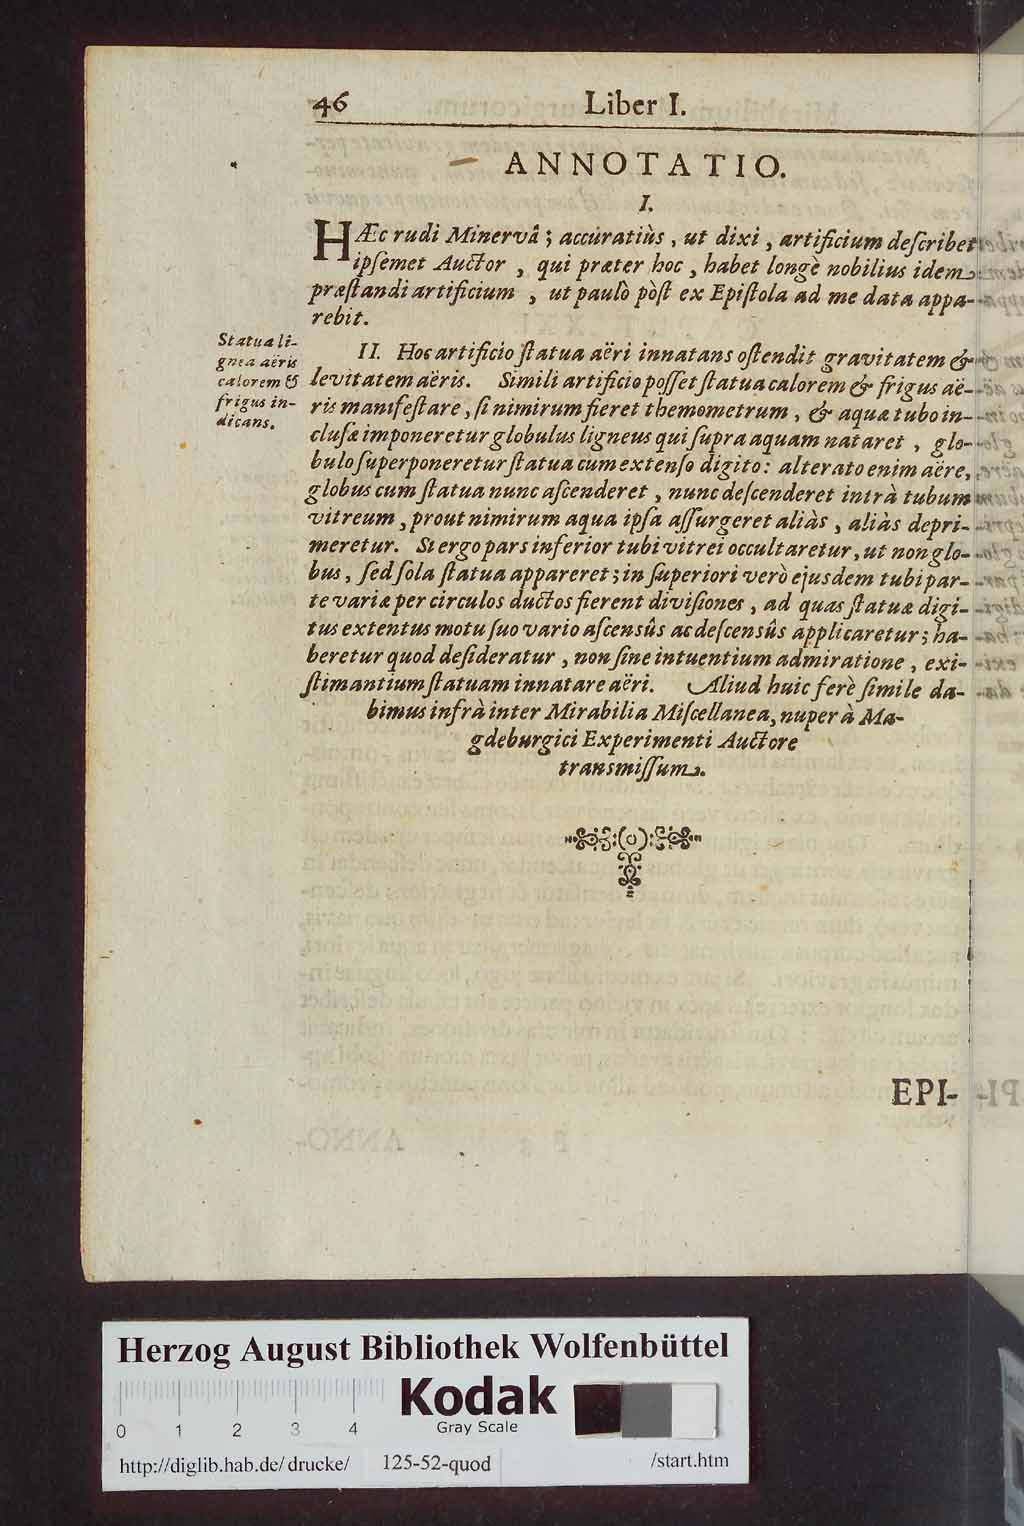 46 Liber I.
ANNOTATIO.
I.
HÆc rudi Minervâ; accuratiùs, ut dixi, artificium deſcribet
ipſemet Auctor, qui præter hoc, habet longè nobilius idem
præſtandi artificium, ut paulò pòſt ex Epiſtola ad me data appa-
rebit.
Statua li-
gnea aëris
calorem &
frigus in-
dicans.
II. Hoc artificio ſtatua aëri innatans oſtendit gravitatem &
levitatem aëris. Simili artificio poſſet ſtatua calorem & frigus aë-
ris manifeſtare, ſi nimirum fieret themometrum, & aquæ tubo in-
cluſæ imponeretur globulus ligneus qui ſupra aquam nataret, glo-
bulo ſuperponeretur ſtatua cum extenſo digito: alterato enim aëre,
globus cum ſtatua nunc aſcenderet, nunc deſcenderet intrà tubum
vitreum, prout nimirum aqua ipſa aſſurgeret aliàs, aliàs depri-
meretur. Si ergo pars inferior tubi vitrei occultaretur, ut non glo-
bus, ſed ſola ſtatua appareret; in ſuperiori verò ejusdem tubi par-
te variæ per circulos ductos fierent diviſiones, ad quas ſtatuæ digi-
tus extentus motu ſuo vario aſcensûs ac deſcensûs applicaretur; ha-
beretur quod deſideratur, non ſine intuentium admiratione, exi-
ſtimantium ſtatuam innatare aëri. Aliud huic ferè ſimile da-
bimus infrà inter Mirabilia Miſcellanea, nuper à Ma-
gdeburgici Experimenti Auctore
transmiſſum.
EPI-
Herzog August Bibliothek Wolfenbüttel
Kodak
Gray Scale
0 1 2 3 4
http://diglib.hab.de/drucke/ 125-52-quod /start.htm